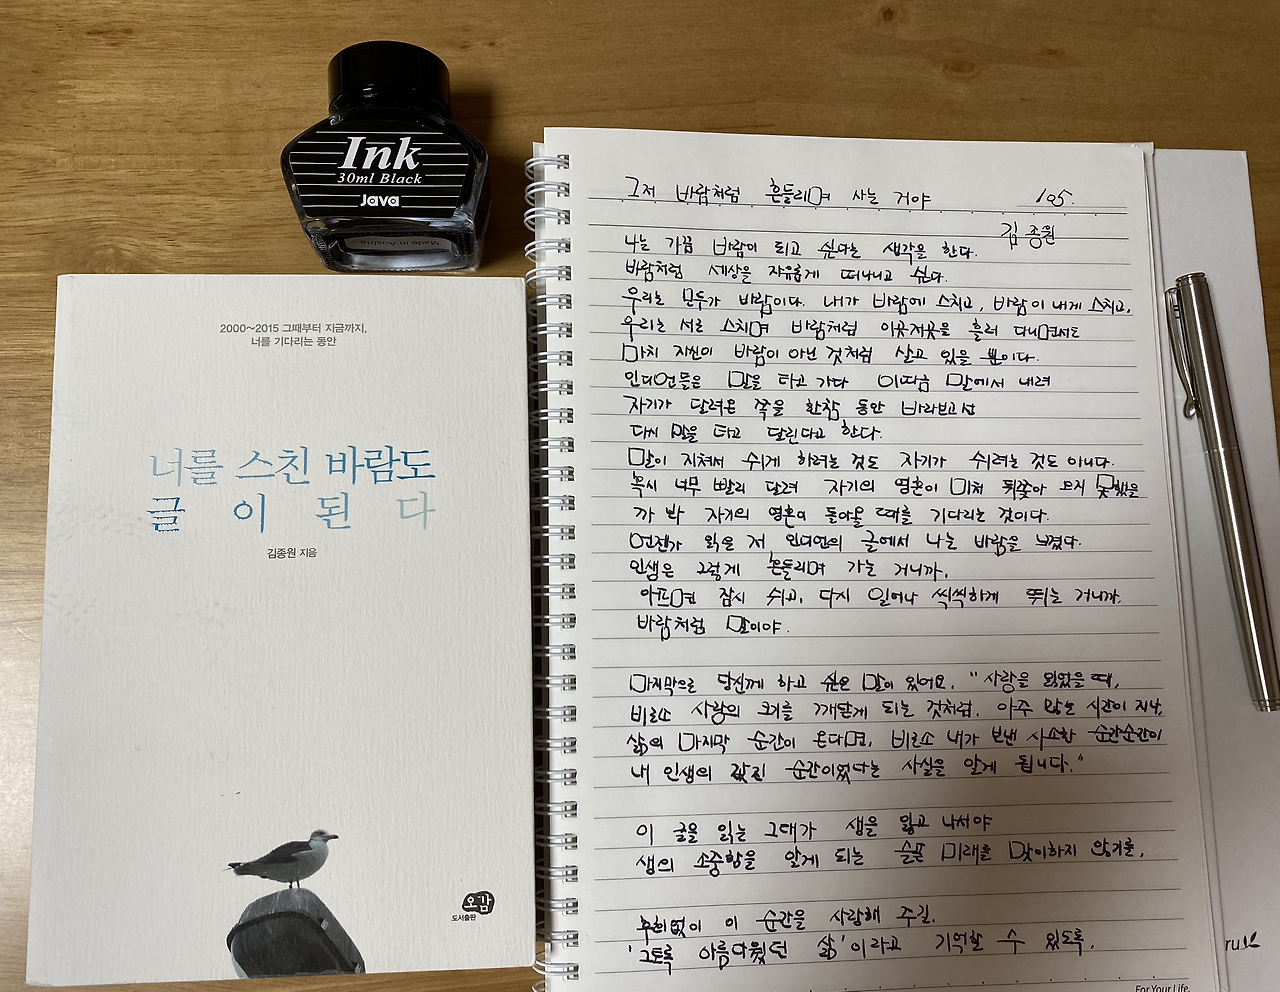 Ink
30ml Black
Java
Made in Austria
2000~2015 그때부터 지금까지,
너를 기다리는 동안
너를 스친 바람도
글이 된다
김종원 지음
오감
도서출판
그저 바람처럼 흔들리며 사는 거야 105.
김종원
나는 가끔 바람이 되고 싶다는 생각을 한다.
바람처럼 세상을 자유롭게 떠다니고 싶다.
우리는 모두가 바람이다. 내가 바람에 스치고, 바람이 내게 스치고,
우리는 서로 스치며 바람처럼 이곳저곳을 흘러 다니면서도
마치 자신이 바람이 아닌 것처럼 살고 있을 뿐이다.
인디언들은 말을 타고 가다 이따금 말에서 내려
자기가 달려온 쪽을 한참 동안 바라보고선
다시 말을 타고 달린다고 한다.
말이 지쳐서 쉬게 하려는 것도 자기가 쉬려는 것도 아니다.
혹시 너무 빨리 달려 자기의 영혼이 미처 뒤쫓아 오지 못했을
까 봐 자기의 영혼이 돌아올 때를 기다리는 것이다.
언젠가 읽은 저 인디언의 글에서 나는 바람을 느꼈다.
인생은 그렇게 흔들리며 가는 거니까.
아프면 잠시 쉬고, 다시 일어나 씩씩하게 뛰는 거니까.
바람처럼 말이야.
마지막으로 당신께 하고 싶은 말이 있어요. "사랑을 잃었을 때,
비로소 사랑의 크기를 깨닫게 되는 것처럼. 아주 많은 시간이 지나,
삶의 마지막 순간이 온다면, 비로소 내가 보낸 사소한 순간순간이
내 인생의 값진 순간이었다는 사실을 알게 됩니다."
이 글을 읽는 그대가 생을 잃고 나서야
생의 소중함을 알게 되는 슬픈 미래를 맞이하지 않기를,
후회없이 이 순간을 사랑해 주길.
'그토록 아름다웠던 삶'이라고 기억할 수 있도록.
For Your Life.